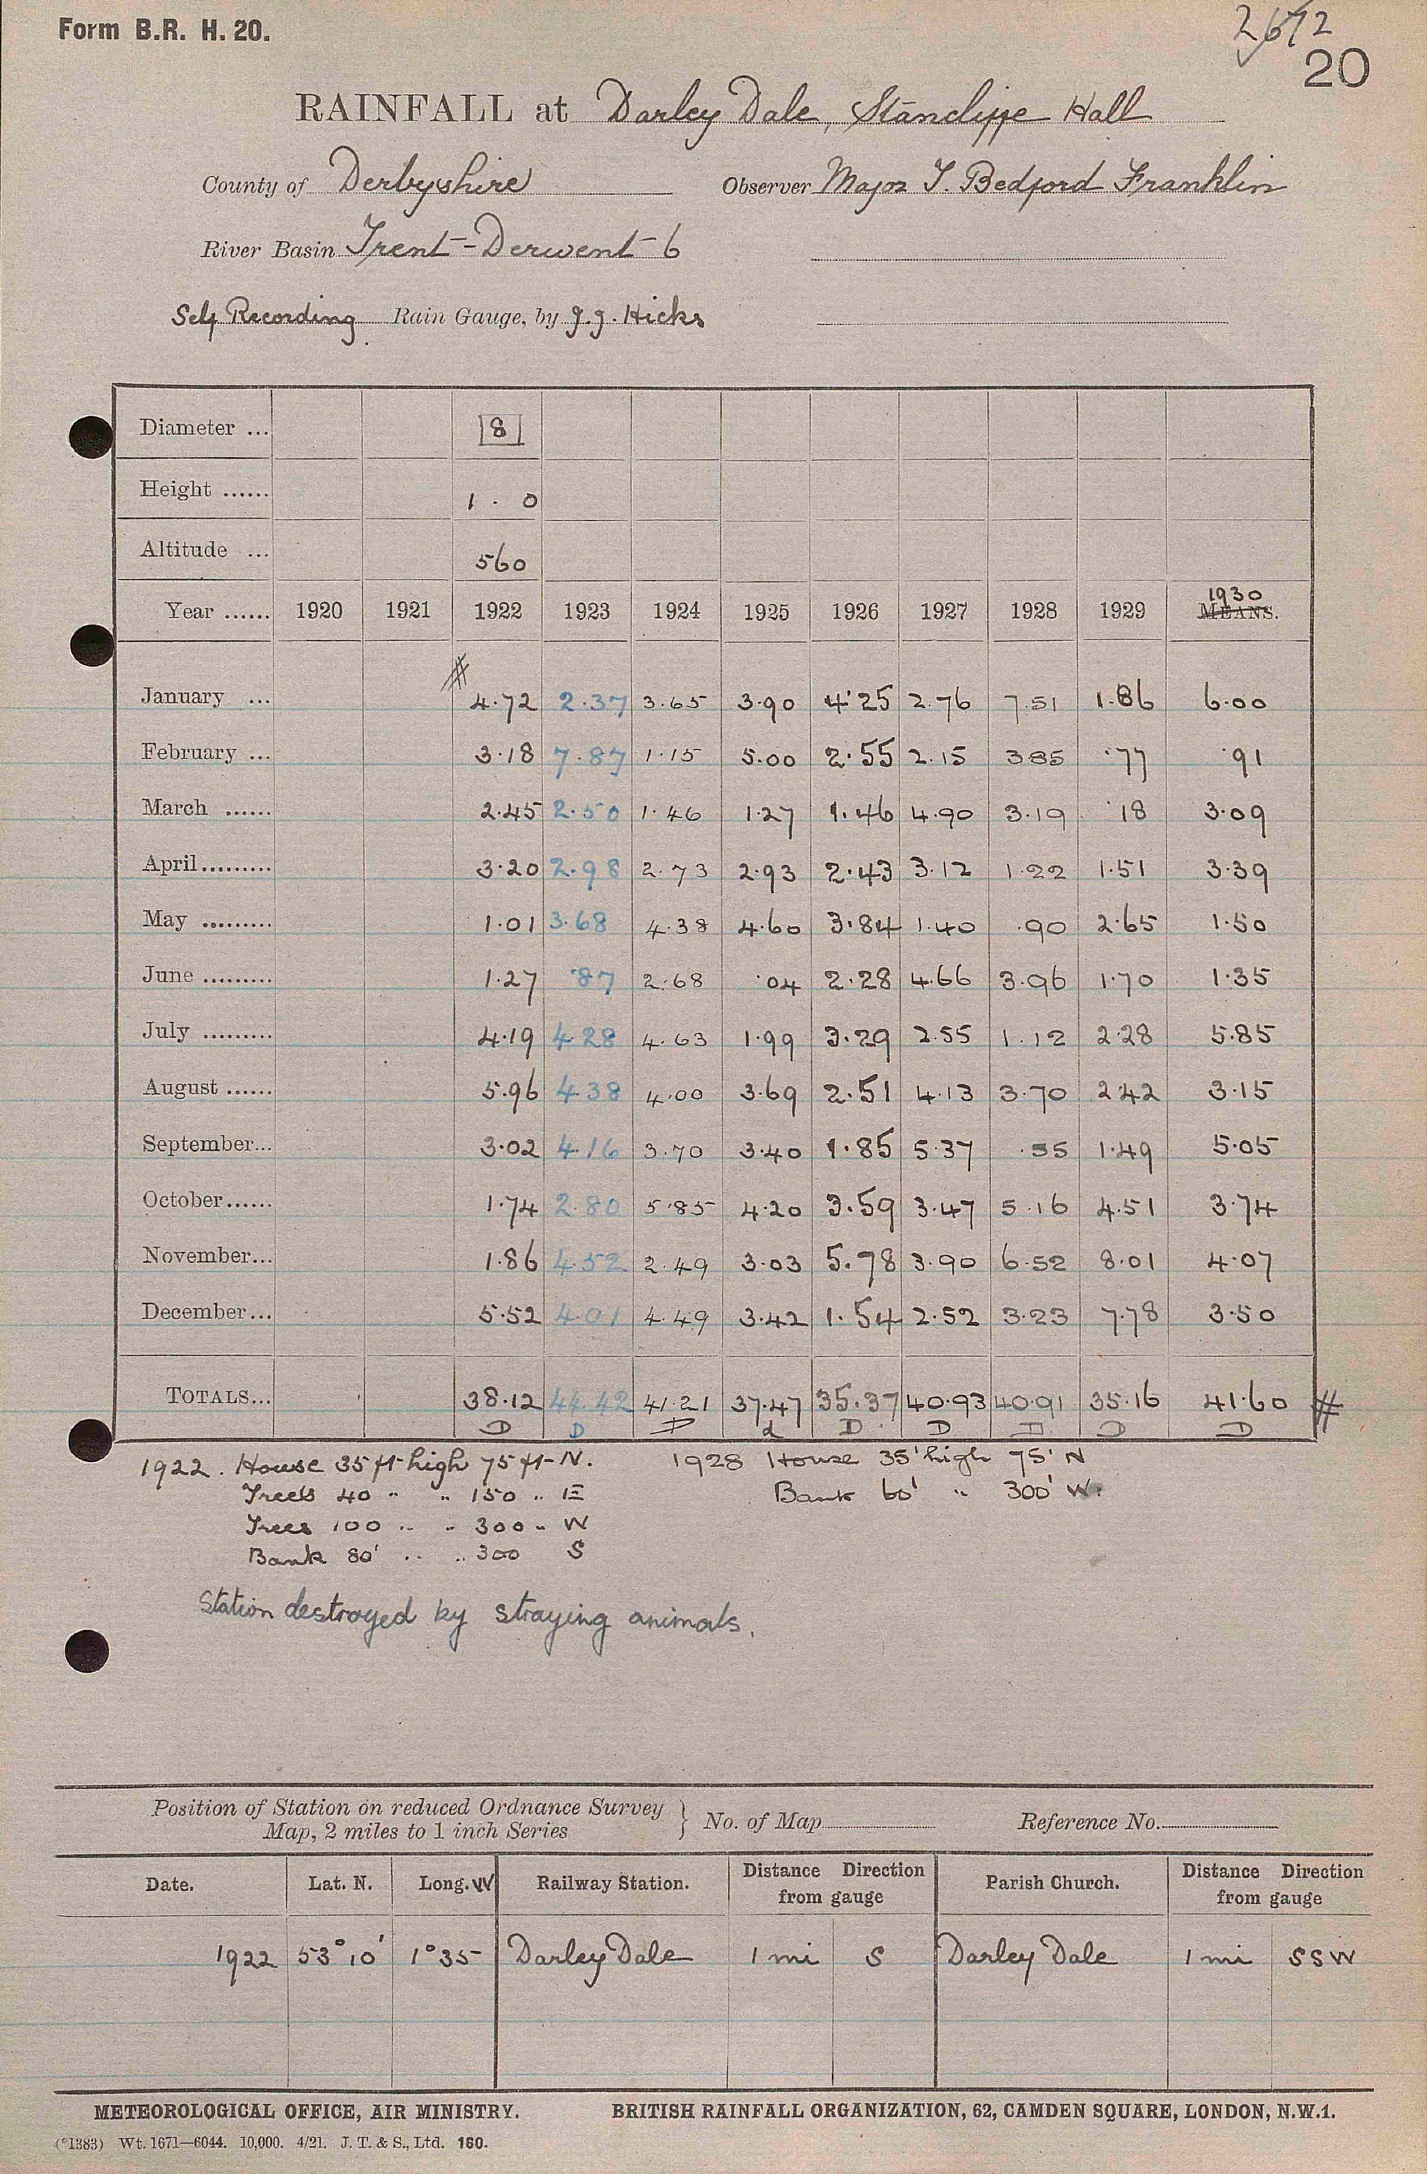 Form B.R. H. 20.
2672
20
RAINFALL at Darley Dale, Stancliffe Hall
County of Derbyshire Observer Major T. Bedford Franklin
River Basin Trent-Derwent 6
Self Recording Rain Gauge, by J.J. Hicks
Diameter ... 8
Height ...... 1 . 0
Altitude ... 560
1930
Year ...... 1920 1921 1922 1923 1924 1925 1926 1927 1928 1929 MEANS.
#
January ... 4.72 2.37 3.65 3.90 4.25 2.76 7.51 1.86 6.00
February ... 3.18 7.87 1.15 5.00 2.55 2.15 3.85 .77 .91
March ...... 2.45 2.50 1.46 1.27 1.46 4.90 3.19 .18 3.09
April ......... 3.20 2.98 2.73 2.93 2.43 3.12 1.22 1.51 3.39
May ......... 1.01 3.68 4.38 4.60 3.84 1.40 .90 2.65 1.50
June ......... 1.27 .87 2.68 .04 2.28 4.66 3.96 1.70 1.35
July ......... 4.19 4.28 4.63 1.99 3.29 2.55 1.12 2.28 5.85
August ...... 5.96 4.38 4.00 3.69 2.51 4.13 3.70 2.42 3.15
September... 3.02 4.16 3.70 3.40 1.85 5.37 .55 1.49 5.05
October...... 1.74 2.80 5.85 4.20 3.59 3.47 5.16 4.51 3.74
November... 1.86 4.52 2.49 3.03 5.78 3.90 6.52 8.01 4.07
December... 5.52 4.01 4.49 3.42 1.54 2.52 3.23 7.78 3.50
TOTALS... 38.12 44.42 41.21 37.47 35.37 40.93 40.91 35.16 41.60 #
D D D d D D D D D
1922. House 35 ft high 75 ft N. 1928 House 35' high 75' N
Trees 40 " " 150 " E Bank 60' " 300' W.
Trees 100 " " 300 " W
Bank 80' " " 300 S
Station destroyed by straying animals.
Position of Station on reduced Ordnance Survey
Map, 2 miles to 1 inch Series } No. of Map Reference No.
Date. Lat. N. Long. W Railway Station. Distance Direction from gauge Parish Church. Distance Direction from gauge
1922 53°10' 1°35 Darley Dale 1 mi S Darley Dale 1 mi SSW
METEOROLOGICAL OFFICE, AIR MINISTRY. BRITISH RAINFALL ORGANIZATION, 62, CAMDEN SQUARE, LONDON, N.W.1.
(*1383) Wt. 1671—6044. 10,000. 4/21. J. T. & S., Ltd. 160.